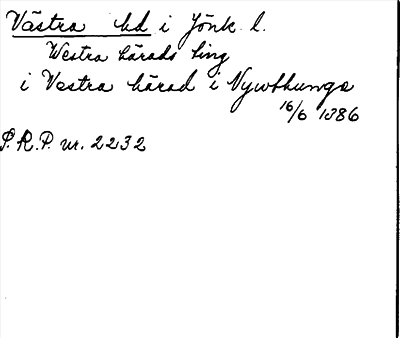 Västra hd i Jönk l.
Westra härads ting
i Vestra härad i Nywthunga
16/6 1386
S.R.P. nr. 2232